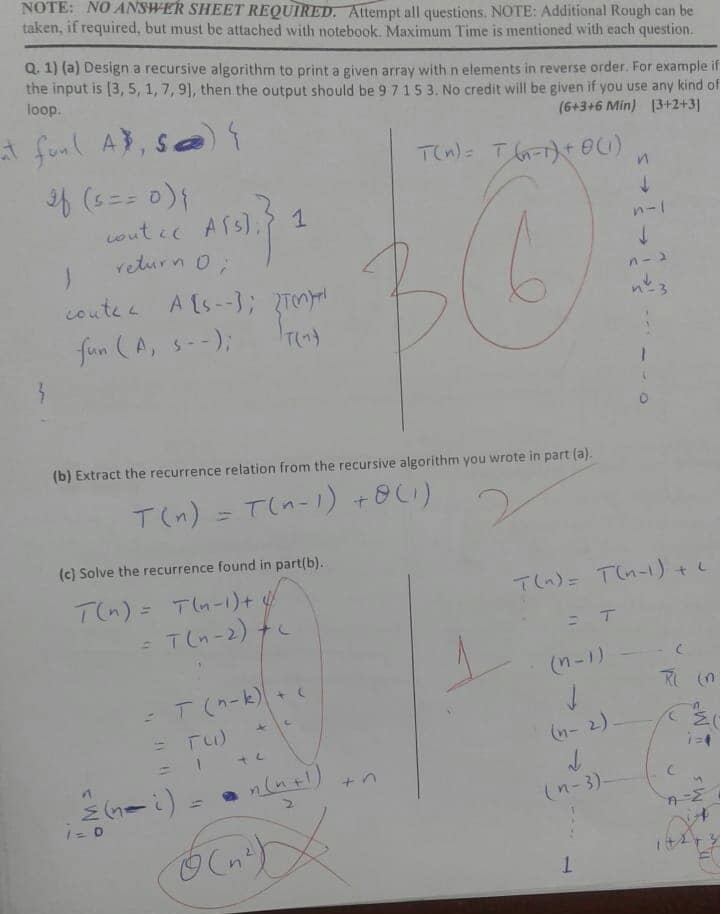 NOTE: NO ANSWER SHEET REQUIRED. Attempt all questions. NOTE: Additional Rough can be
taken, if required, but must be attached with notebook. Maximum Time is mentioned with each question.
Q. 1) (a) Design a recursive algorithm to print a given array with n elements in reverse order. For example if
the input is [3, 5, 1, 7, 9], then the output should be 9 7 1 5 3. No credit will be given if you use any kind of
loop.
(6+3+6 Min) [3+2+3]
fun( A, s) {
If (s == 0) {
cout << A[s]; } 1
return 0;
}
cout << A[s--];
fun (A, s--); T(n)
}
T(n) = T(n-1) + θ(1)
n
↓
n-1
↓
n-2
↓
n-3
1
0
3
6
(b) Extract the recurrence relation from the recursive algorithm you wrote in part (a).
T(n) = T(n-1) + θ(1)
2
(c) Solve the recurrence found in part(b).
T(n) = T(n-1) + c
= T(n-2) + c
= T(n-k) + c
= T(1) + c
= 1 + c
n
Σ (n-i) = n(n+1)/2 + n
i=0
θ(n²)
1
T(n) = T(n-1) + c
= T
(n-1) — c
↓
(n-2) — c
↓
(n-3) — c
1
n
Σ
i=1
1+2+3